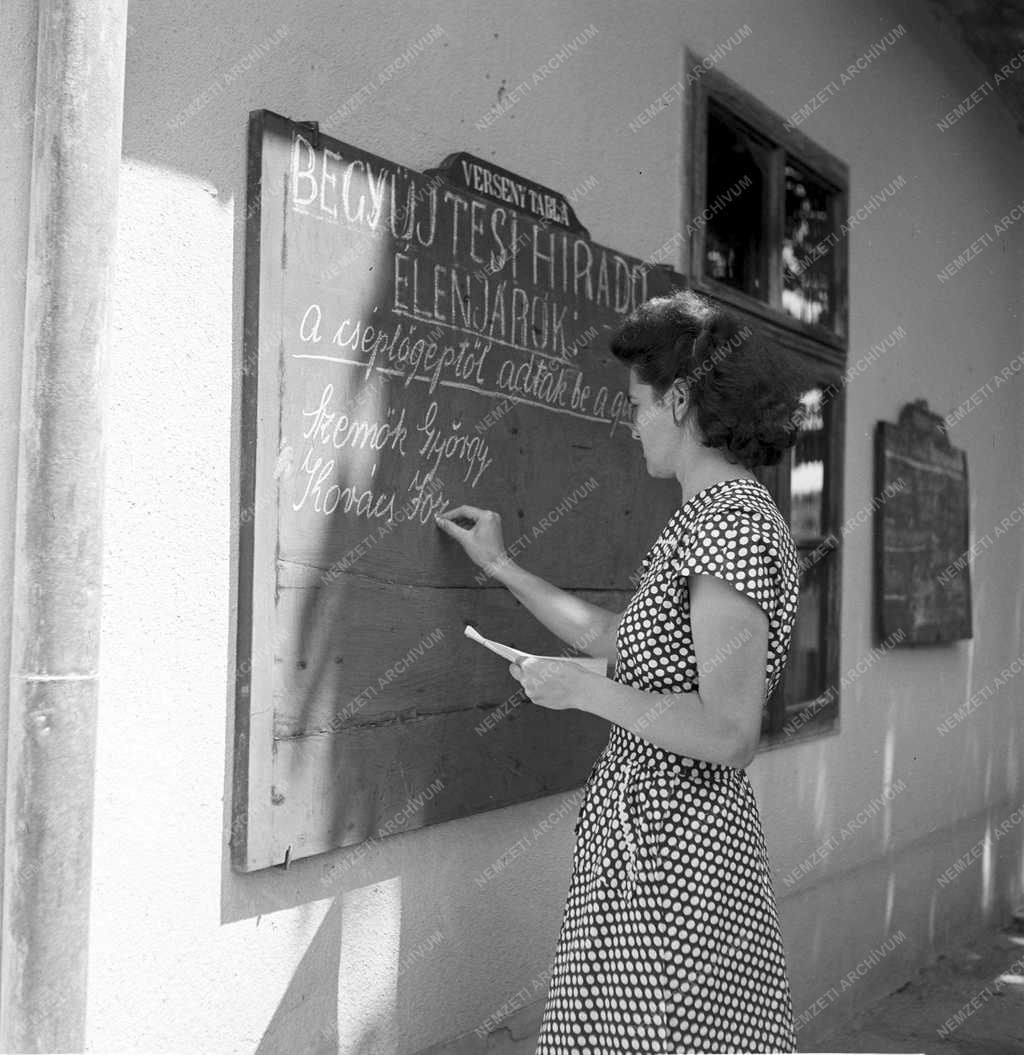 VERSENY TÁBLA
BEGYÜJTESI HIRADÓ
ÉLENJÁRÓK:
A cséplőgéptől adták be a
Szemők György
Kovács Józ
NEMZETI ARCHÍVUM